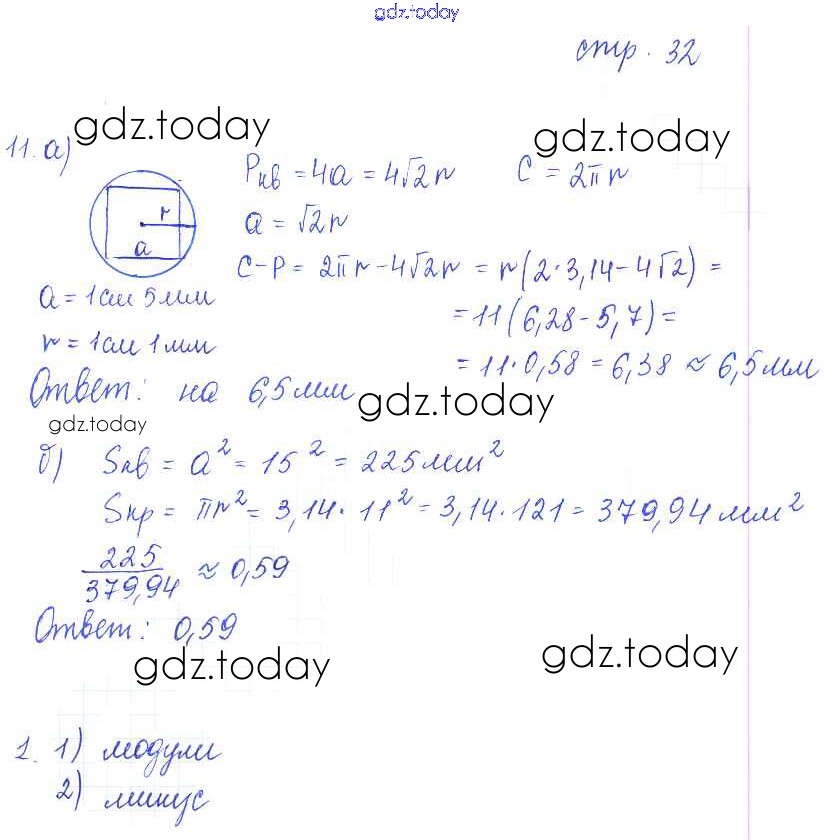 gdz.today
стр. 32
gdz.today
gdz.today
11. а)
Pкв = 4a = 4√2r C = 2πr
r
a = √2r
a
C-P = 2πr-4√2r = r(2·3,14-4√2) =
a = 1см 5мм
= 11(6,28-5,7) =
r = 1см 1мм
= 11·0,58 = 6,38 ≈ 6,5мм
Ответ: на 6,5мм
gdz.today
gdz.today
б) Sкв = a² = 15² = 225мм²
Sкр = πr² = 3,14·11² = 3,14·121 = 379,94мм²
225/379,94 ≈ 0,59
Ответ: 0,59
gdz.today
gdz.today
1. 1) модули
2) минус